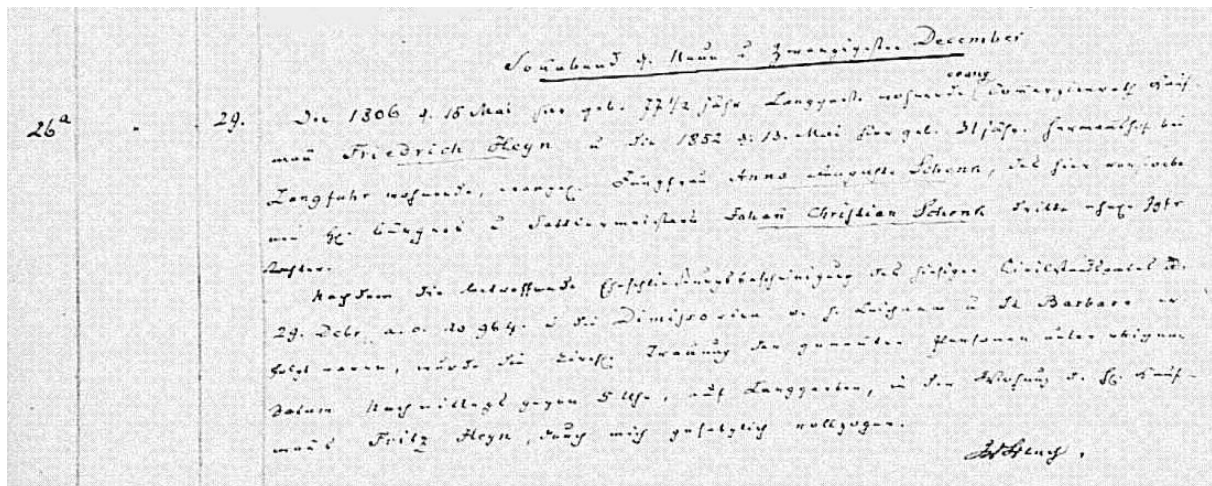 Sonnabend d. Neun u Zwanzigsten December
26a " 29. Der 1806 d. 16 Mai hier geb. 77 1/2 jähr. Langgasse wohnende evang Commerzienrath Kauf-
mann Friedrich Heyn u die 1852 d. 13. Mai hier geb. 31 jähr. bei
Langfuhr wohnende, evangel. Jungfrau Anna Auguste Schenk, des hier verstorbe
nen H. Bürgers u Sattlermeisters Johann Christian Schenk dritte ehel. Jgfr
Tochter.
Nachdem die betreffende Eheschließungsbescheinigung des hiesigen Civilstandsamtes d.
29. Debr. a. c. No 964. u die Dimissorien v. h. Leichnam u St. Barbara er
folgt waren, wurde die kirchl. Trauung der genannten Personen unter obigem
Datum Nachmittags gegen 5 Uhr, auf Langgarten, in der Wohnung d. H. Kauf-
manns Fritz Heyn, durch mich gesetzlich vollzogen.